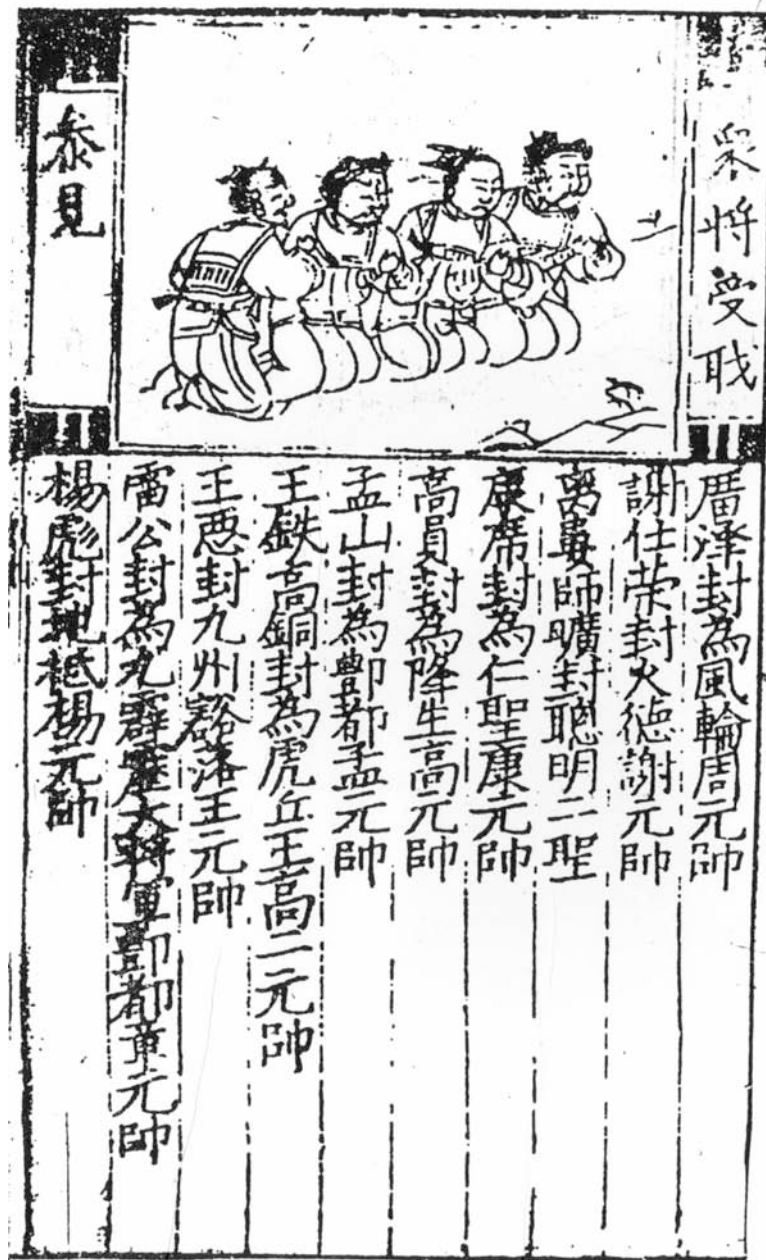 衆将受职
廣澤封為風輪周元帥
謝仕荣封火德謝元帥
离婁師曠封聰明二聖
康席封為仁聖康元帥
高員封為降生高元帥
孟山封為酆都孟元帥
王鉄高銅封為虎丘王高二元帥
王惡封九州豁落王元帥
雷公封為九霹靂大將軍酆都章元帥
楊彪封地祇楊元帥
叅見